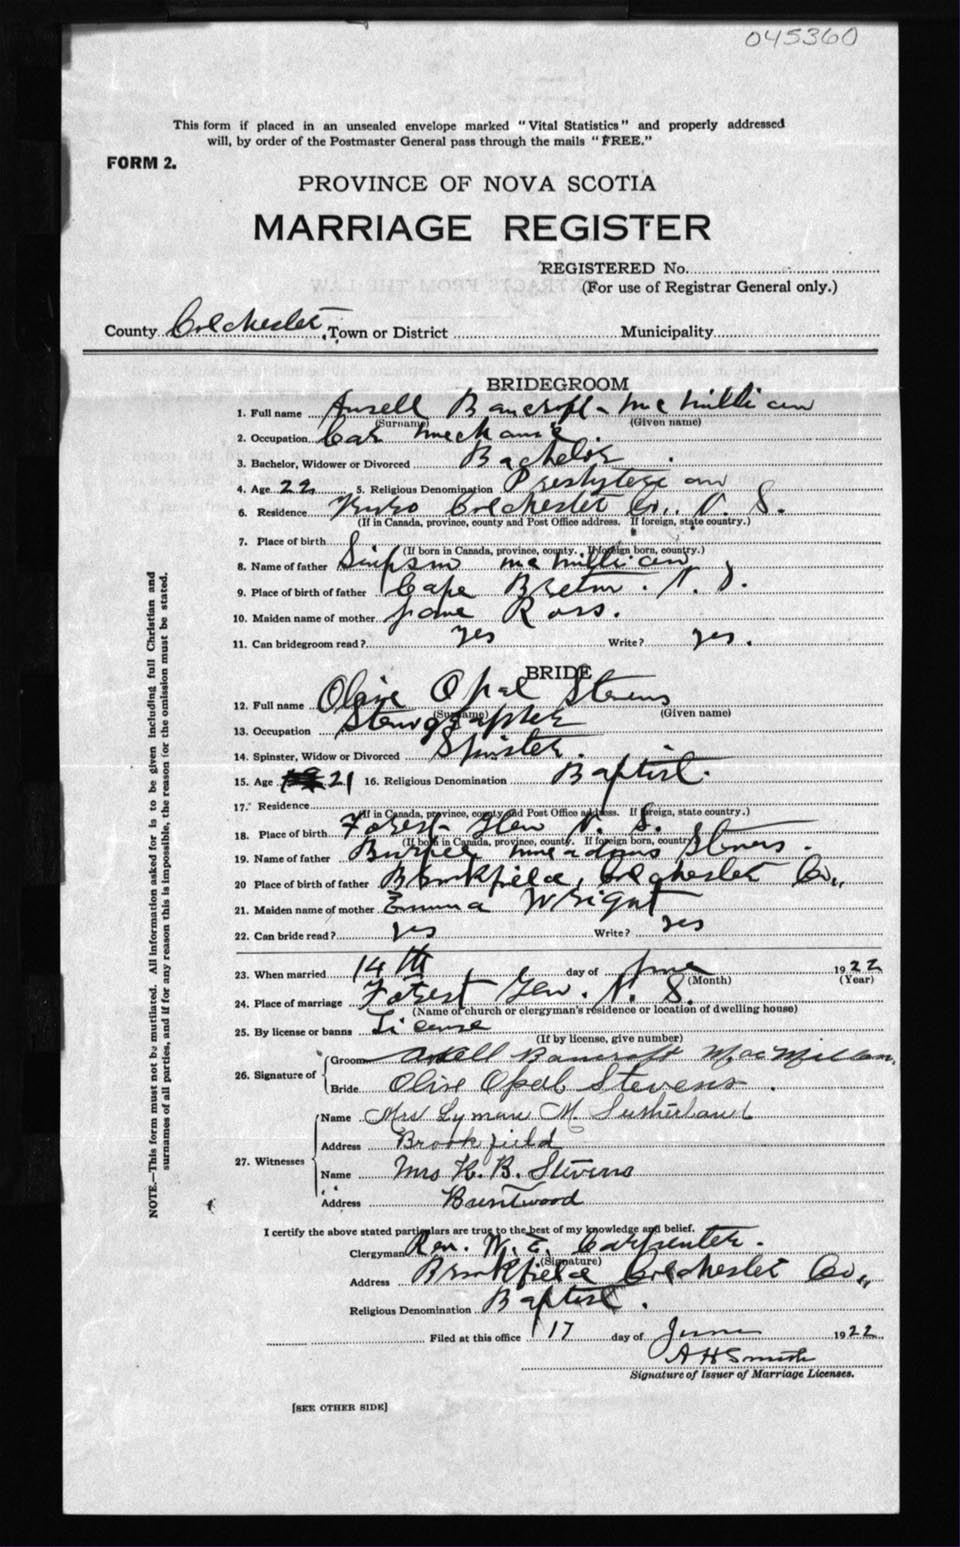 045360
This form if placed in an unsealed envelope marked "Vital Statistics" and properly addressed
will, by order of the Postmaster General pass through the mails "FREE."
FORM 2.
PROVINCE OF NOVA SCOTIA
MARRIAGE REGISTER
REGISTERED No.
(For use of Registrar General only.)
County Colchester, Town or District Municipality
BRIDEGROOM
1. Full name Ansell Bancroft McMillian
(Surname) (Given name)
2. Occupation Car Mechanic
3. Bachelor, Widower or Divorced Bachelor
4. Age 22 5. Religious Denomination Presbyterian
6. Residence Truro Colchester Co., N. S.
(If in Canada, province, county and Post Office address. If foreign, state country.)
7. Place of birth
(If born in Canada, province, county. If foreign born, country.)
8. Name of father Simpson McMillian
9. Place of birth of father Cape Breton. N. S.
10. Maiden name of mother Jane Ross.
11. Can bridegroom read? yes Write? yes.
BRIDE
12. Full name Olive Opal Stevens
(Surname) (Given name)
13. Occupation Stenographer
14. Spinster, Widow or Divorced Spinster.
15. Age 21 16. Religious Denomination Baptist.
17. Residence
(If in Canada, province, county and Post Office address. If foreign, state country.)
18. Place of birth Forest Glen N. S.
(If born in Canada, province, county. If foreign born, country)
19. Name of father Burpee Stevens.
20 Place of birth of father Brookfield, Colchester Co.,
21. Maiden name of mother Emma Wright
22. Can bride read? yes Write? yes
23. When married 14th day of June 1922
(Month) (Year)
24. Place of marriage Forest Glen. N. S.
(Name of church or clergyman's residence or location of dwelling house)
25. By license or banns License
(If by license, give number)
26. Signature of Groom Ansell Bancroft MacMillan
Bride Olive Opal Stevens.
27. Witnesses Name Mrs Lyman M. Sutherland
Address Brookfield
Name Mrs R. B. Stevens
Address Brentwood
I certify the above stated particulars are true to the best of my knowledge and belief.
Clergyman Rev. W. E. Carpenter.
(Signature)
Address Brookfield Colchester Co.,
Religious Denomination Baptist.
Filed at this office 17 day of June 1922
A H Smith
Signature of Issuer of Marriage Licenses.
[SEE OTHER SIDE]
NOTE.—This form must not be mutilated. All information asked for is to be given including full Christian and
surnames of all parties, and if for any reason this is impossible, the reason for the omission must be stated.